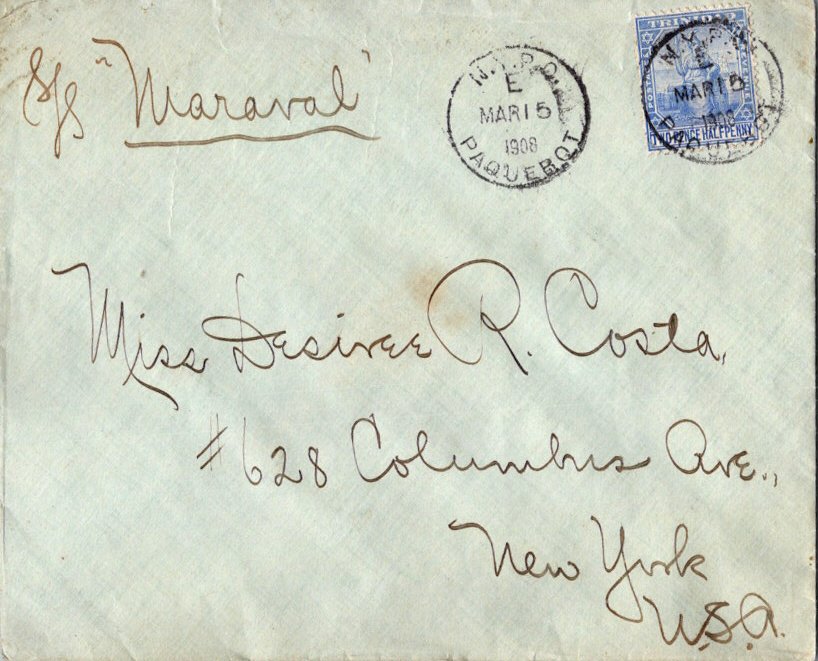 S/S "Maraval"
N.Y.P.O.
E
MAR 15
1908
PAQUEBOT
TRINIDAD
POSTAGE
TWO PENCE HALFPENNY
N.Y.P.O.
E
MAR 15
1908
PAQUEBOT
Miss Desiree R. Costa,
#628 Columbus Ave.,
New York
U.S.A.